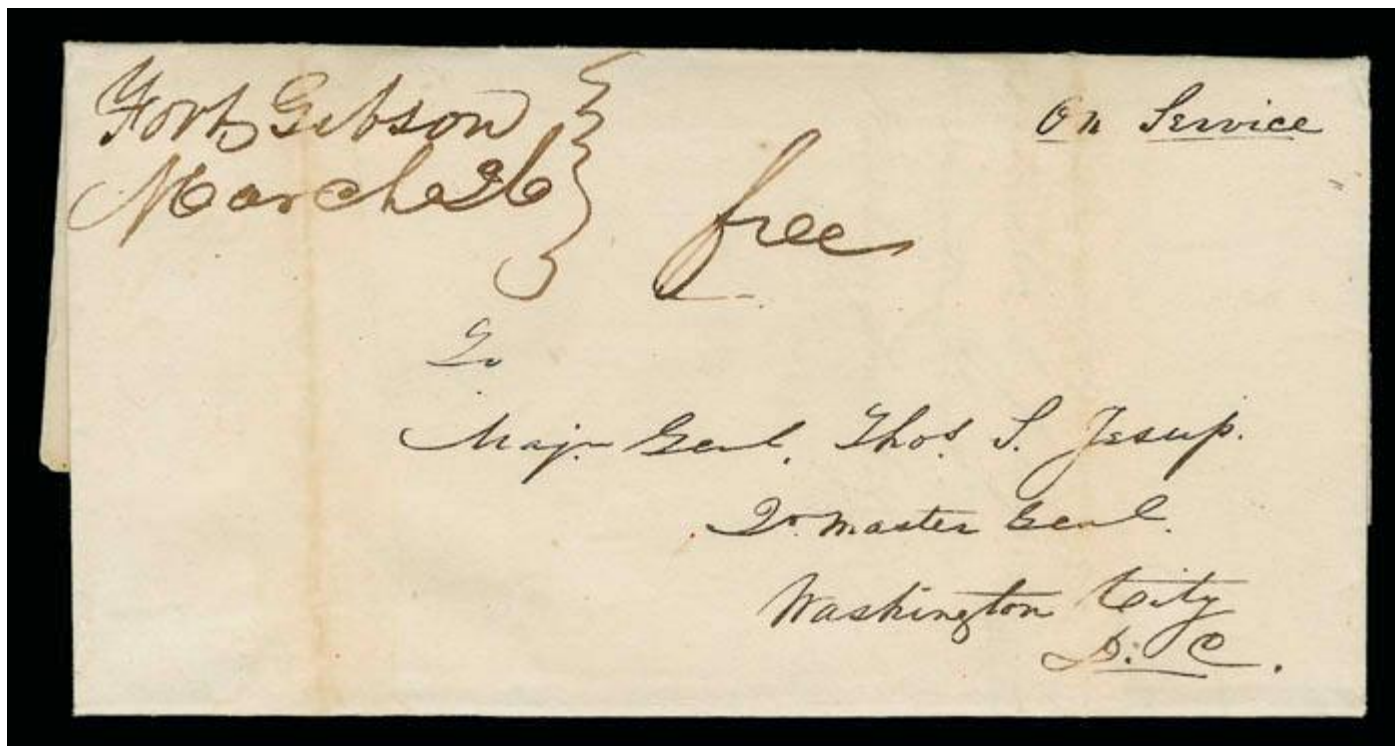 Fort Gibson
March 26
On Service
free
To
Majr. Genl. Thos. S. Jesup.
Qr. Master Genl.
Washington City
D. C.